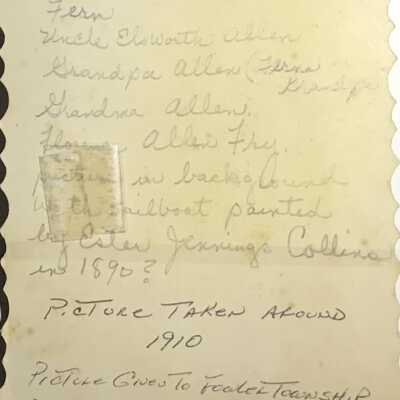 Fern
Uncle Elsworth Allen
Grandpa Allen (Ferns Grandpa
Grandma Allen.
Allen Fry.
picture in background
with sailboat painted
by Ester Jennings Collins
in 1890?
PICTURE TAKEN AROUND
1910
PICTURE GIVEN TO FOWLER TOWNSHIP